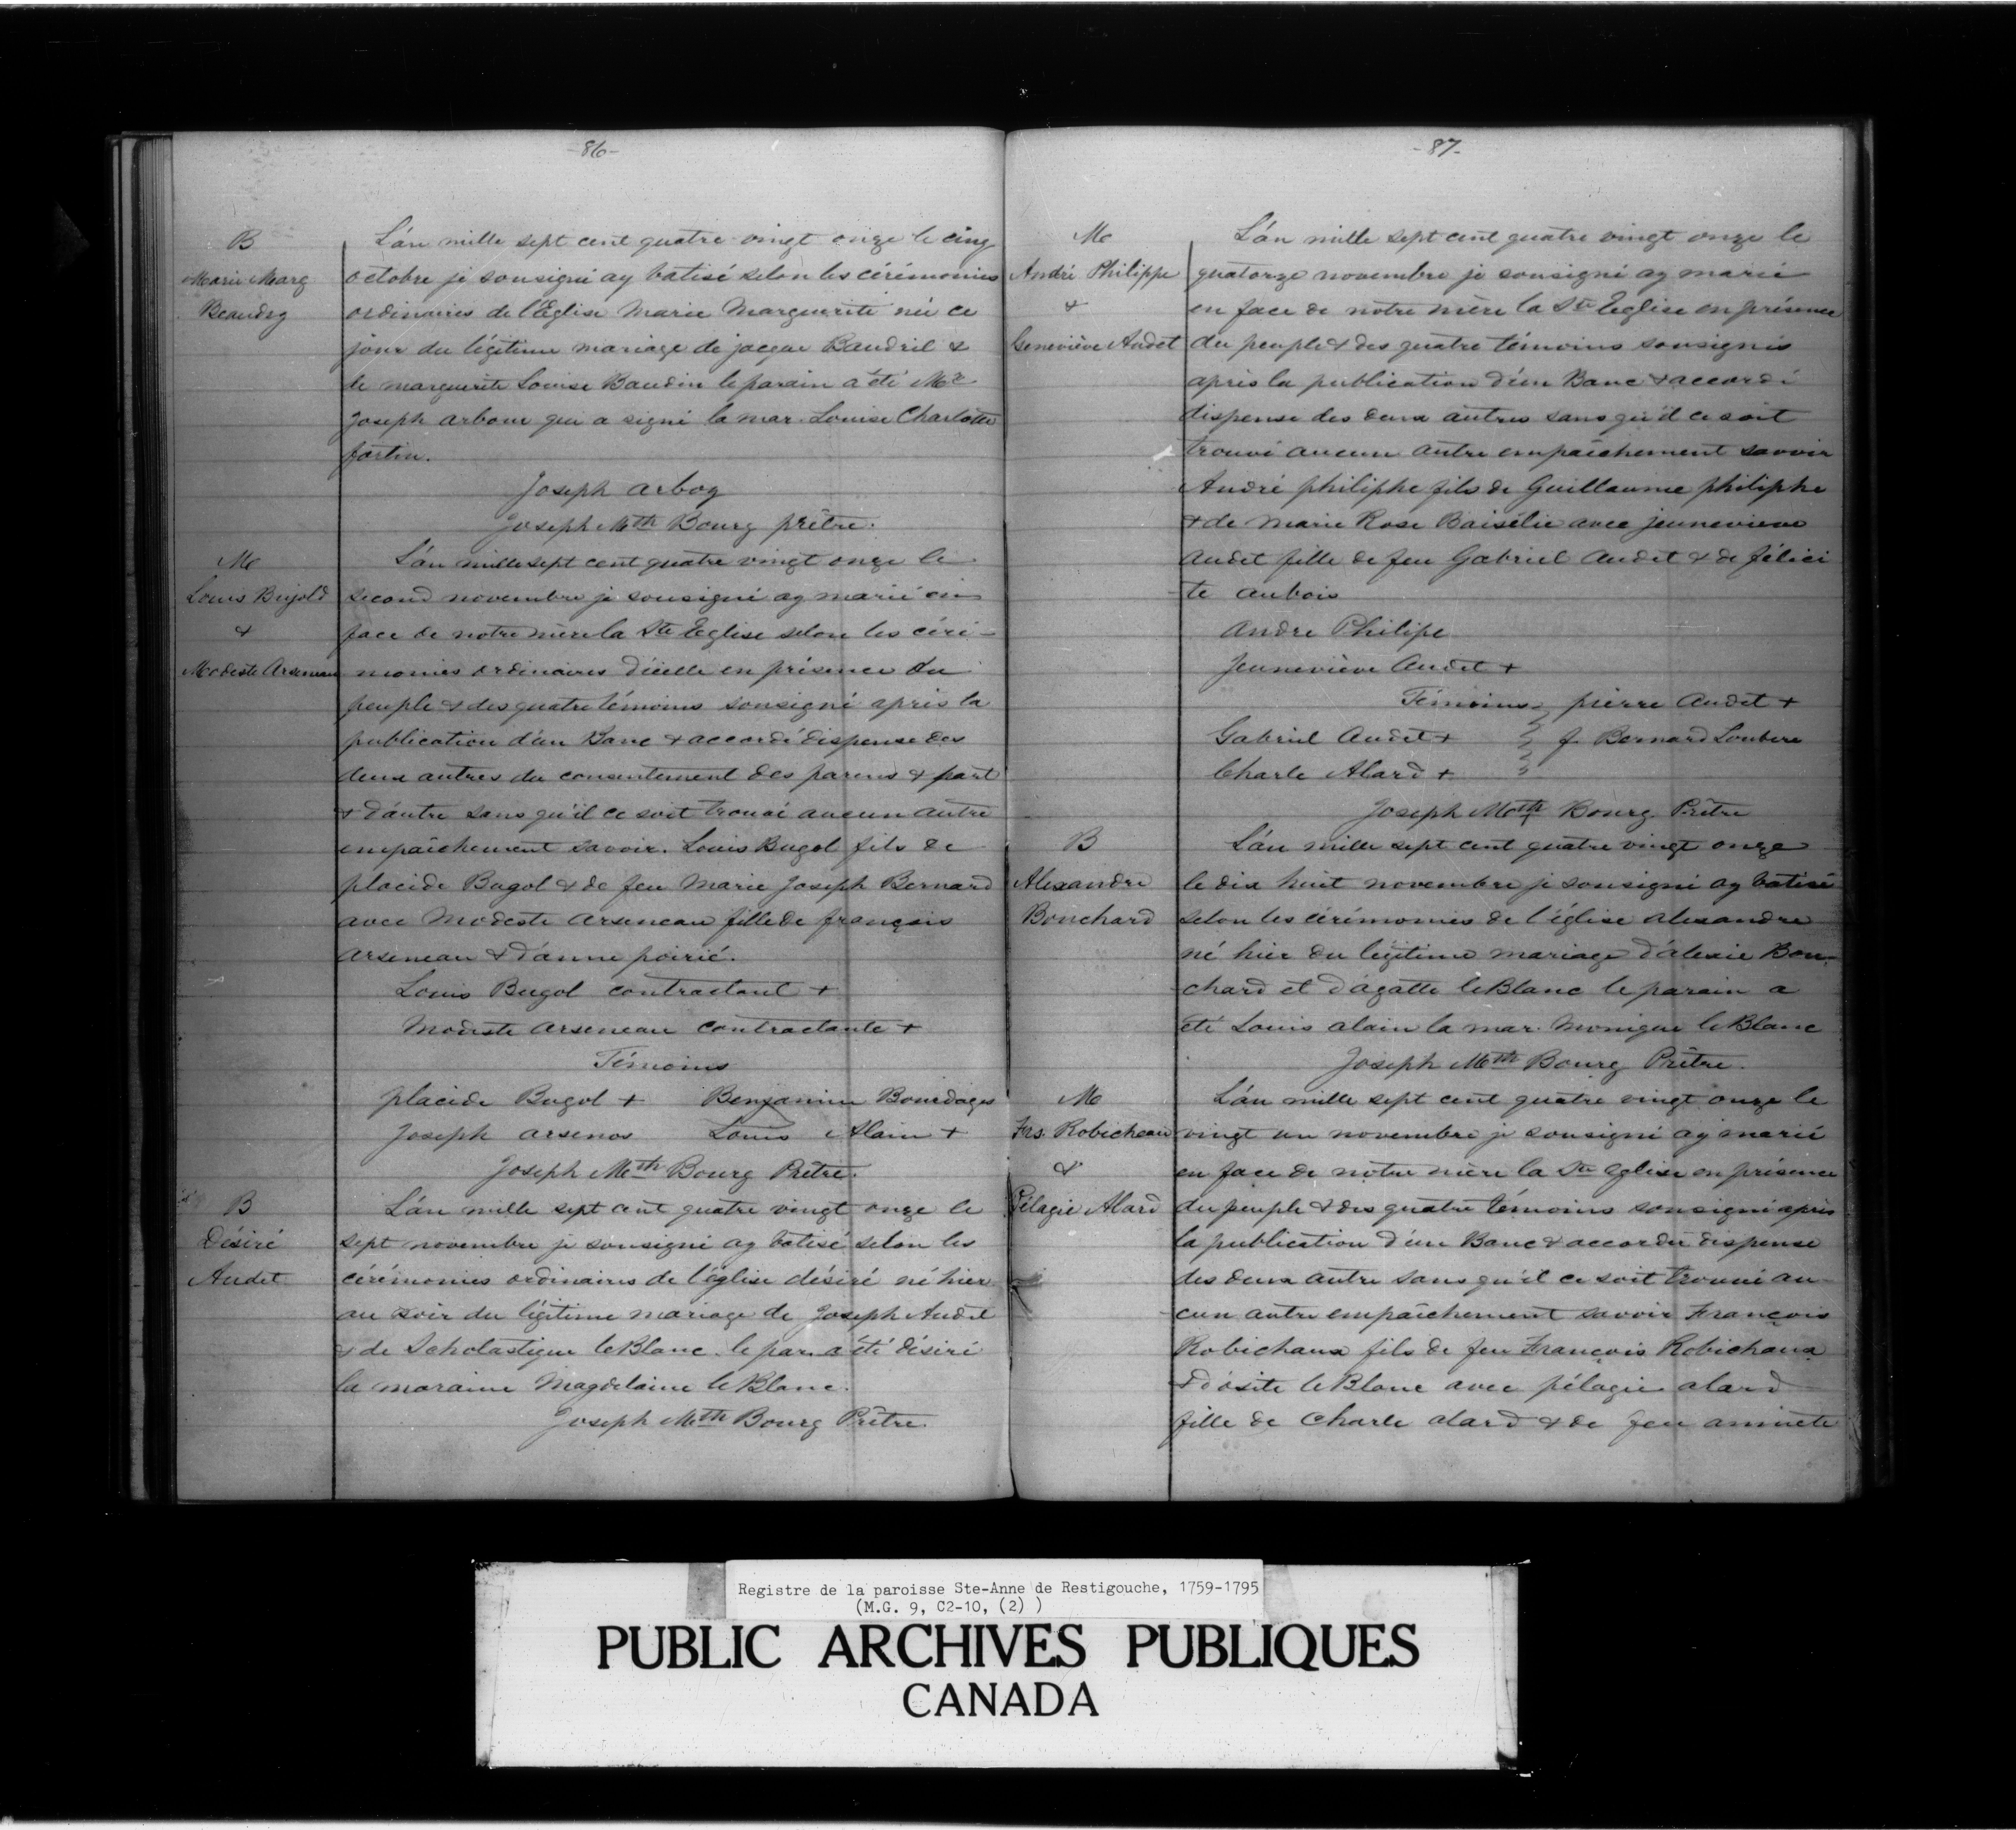 -86-
B
Marie Marg
Beaudry
L'án mille sept cent quatre vingt onze le cinq
octobre je sousigné ay batisé selon les cérémonies
ordinaires de l'Eglise Marie Marguerite née ce
jour du légitime mariage de jacque Baudril &
de marguerite Louise Baudin le parain a été Mr
Joseph arbour qui a signé la mar. Louise Charlotte
fortin.
Joseph arboy
Joseph Mth Bourg prêtre.
M
Louis Bujold
&
Modeste Arseneau
L'án mille sept cent quatre vingt onze le
second novembre je sousigné ay marié en
face de notre mère la Ste Eglise selon les céré-
monies ordinaires d'icelle en présence du
peuple & des quatre témoins sousigné après la
publication d'un Banc & accordé dispense des
deux autres du consentement des parens & part
& d'autre sans qu'il ce soit trouvé aucun autre
empaîchement savoir. Louis Bugol fils de
placide Bugol & de feu Marie Joseph Bernard
avec Modeste arseneau fille de françois
arseneau & d'anne poirié.
Louis Bugol contractant +
Modeste arseneau contractante +
Témoins
placide Bugol + Benjamin Bourdages
Joseph arsenos Louis Alain +
Joseph Mth Bourg Prêtre.
B
Désiré
Audet
L'án mille sept cent quatre vingt onze le
sept novembre je sousigné ay batisé selon les
cérémonies ordinaires de l'église désiré né hier
au soir du légitime mariage de Joseph Audet
& de Scholastique leBlanc le par. a été désiré
la maraine Magdelaine leBlanc.
Joseph Mth Bourg Prêtre.
-87-
M
André Philippe
&
Geneviève Audet
L'án mille sept cent quatre vingt onze le
quatorze novembre je sousigné ay marié
en face de notre mère la Ste Eglise en présence
du peuple & des quatre témoins sousignés
après la publication d'un Banc & accordé
dispense des deux autres sans qu'il ce soit
trouvé aucun autre empaîchement savoir
André philiphe fils de Guillaume philiphe
& de Marie Rose Baisélié avec jeunevieve
audet fille de feu Gabriel audet & de félici
té aubois
Andre Philipe
Jeuneviève Audet +
Témoins pierre Audet +
Gabriel Audet + J. Bernard Loubere
Charle Alard +
Joseph Mth Bourg Prêtre
B
Alexandre
Bouchard
L'án mille sept cent quatre vingt onze
le dix huit novembre je sousigné ay batisé
selon les cérémonies de l'église alexandre
né hier du légitime mariage d'alexie Bou-
chard et d'ágatte leBlanc le parain a
été Louis alain la mar. Monique leBlanc
Joseph Mth Bourg Prêtre.
M
Frs. Robicheau
&
Pélagie Alard
L'án mille sept cent quatre vingt onze le
vingt un novembre je sousigné ay marié
en face de notre mère la Ste Eglise en présence
du peuple & des quatre témoins sousigné après
la publication d'un Banc & accordée dispense
des deux autre sans qu'il ce soit trouvé au-
cun autre empaîchement savoir François
Robichaux fils de feu François Robichaux
& d'osite leBlanc avec pélagie alard
fille de Charle alard & de feu
Registre de la paroisse Ste-Anne de Restigouche, 1759-1795
(M.G. 9, C2-10, (2) )
PUBLIC ARCHIVES PUBLIQUES
CANADA